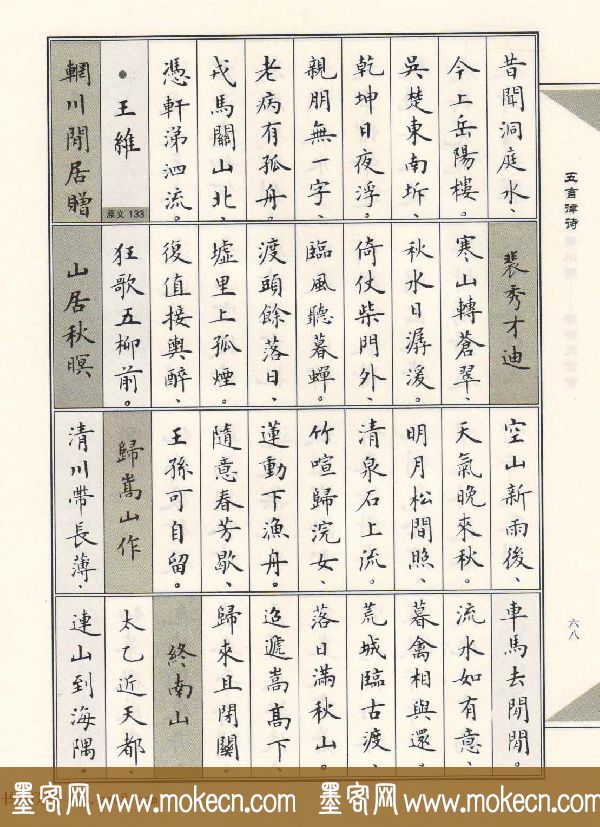 五言律诗
昔聞洞庭水、
今上岳陽樓。
吳楚東南坼、
乾坤日夜浮。
親朋無一字、
老病有孤舟。
戎馬關山北、
憑軒涕泗流。
●王維
原文 133
輞川閒居贈
裴秀才迪
寒山轉蒼翠、
秋水日潺湲。
倚仗柴門外、
臨風聽暮蟬。
渡頭餘落日、
墟里上孤煙。
復值接輿醉、
狂歌五柳前。
山居秋暝
空山新雨後、
天氣晚來秋。
明月松間照、
清泉石上流。
竹喧歸浣女、
蓮動下漁舟。
隨意春芳歇、
王孫可自留。
歸嵩山作
清川帶長薄、
車馬去閒閒。
流水如有意、
暮禽相與還。
荒城臨古渡、
落日滿秋山。
迢遞嵩髙下、
歸來且閉關。
終南山
太乙近天都、
連山到海隅。
六八
墨客网 www.mokecn.com 墨客网 www.mokecn.com